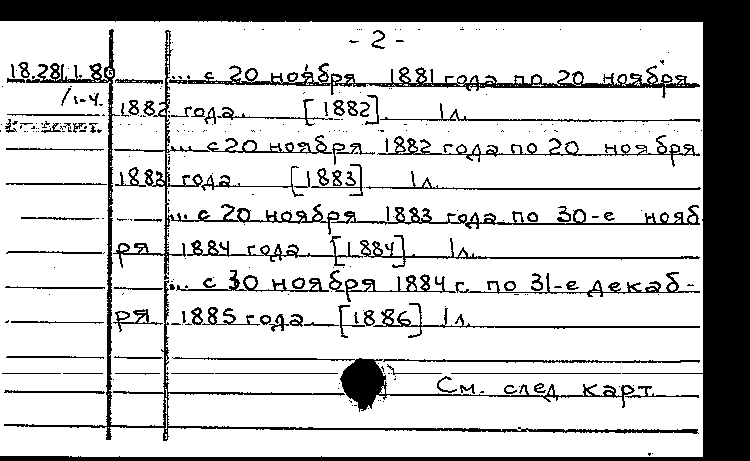 - 2 -
18.281.1.80 ... с 20 ноября 1881 года по 20 ноября
/1-4. 1882 года. [1882] 1л.
... с 20 ноября 1882 года по 20 ноября
1883 года. [1883] 1л.
... с 20 ноября 1883 года по 30-е нояб
ря 1884 года. [1884]. 1л.
... с 30 ноября 1884 г. по 31-е декаб-
ря 1885 года. [1886] 1л.
См. след карт.